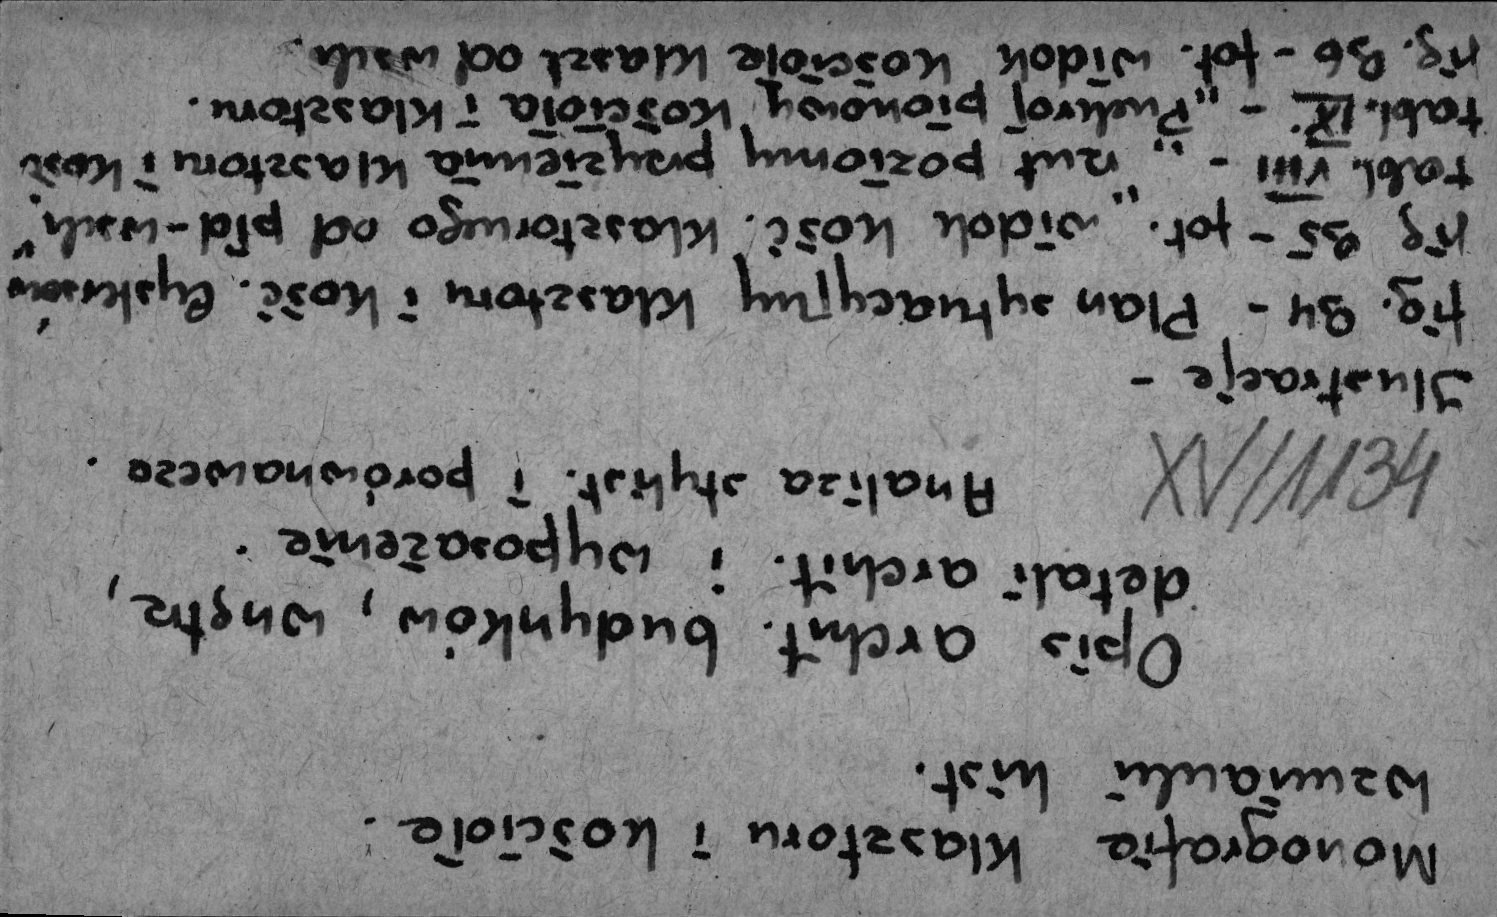 Monografia klasztoru i kościoła.
Wzmianki hist.
Opis archit. budynków, wnętrz,
detali archit. i wyposażenie.
Analiza stylist. i porównawcza.
XV/1134
Ilustracje -
fig. 94 - Plan sytuacyjny klasztoru i kość.
fig 95 - fot. "widok kość. klasztornego od płd-wsch."
tabl. VIII - "rzut poziomy przyziemia klasztoru i kość.
tabl. IX. - "Przekrój pionowy kościoła i klasztoru.
fig. 96 - fot. widok kościoła klaszt od wsch.